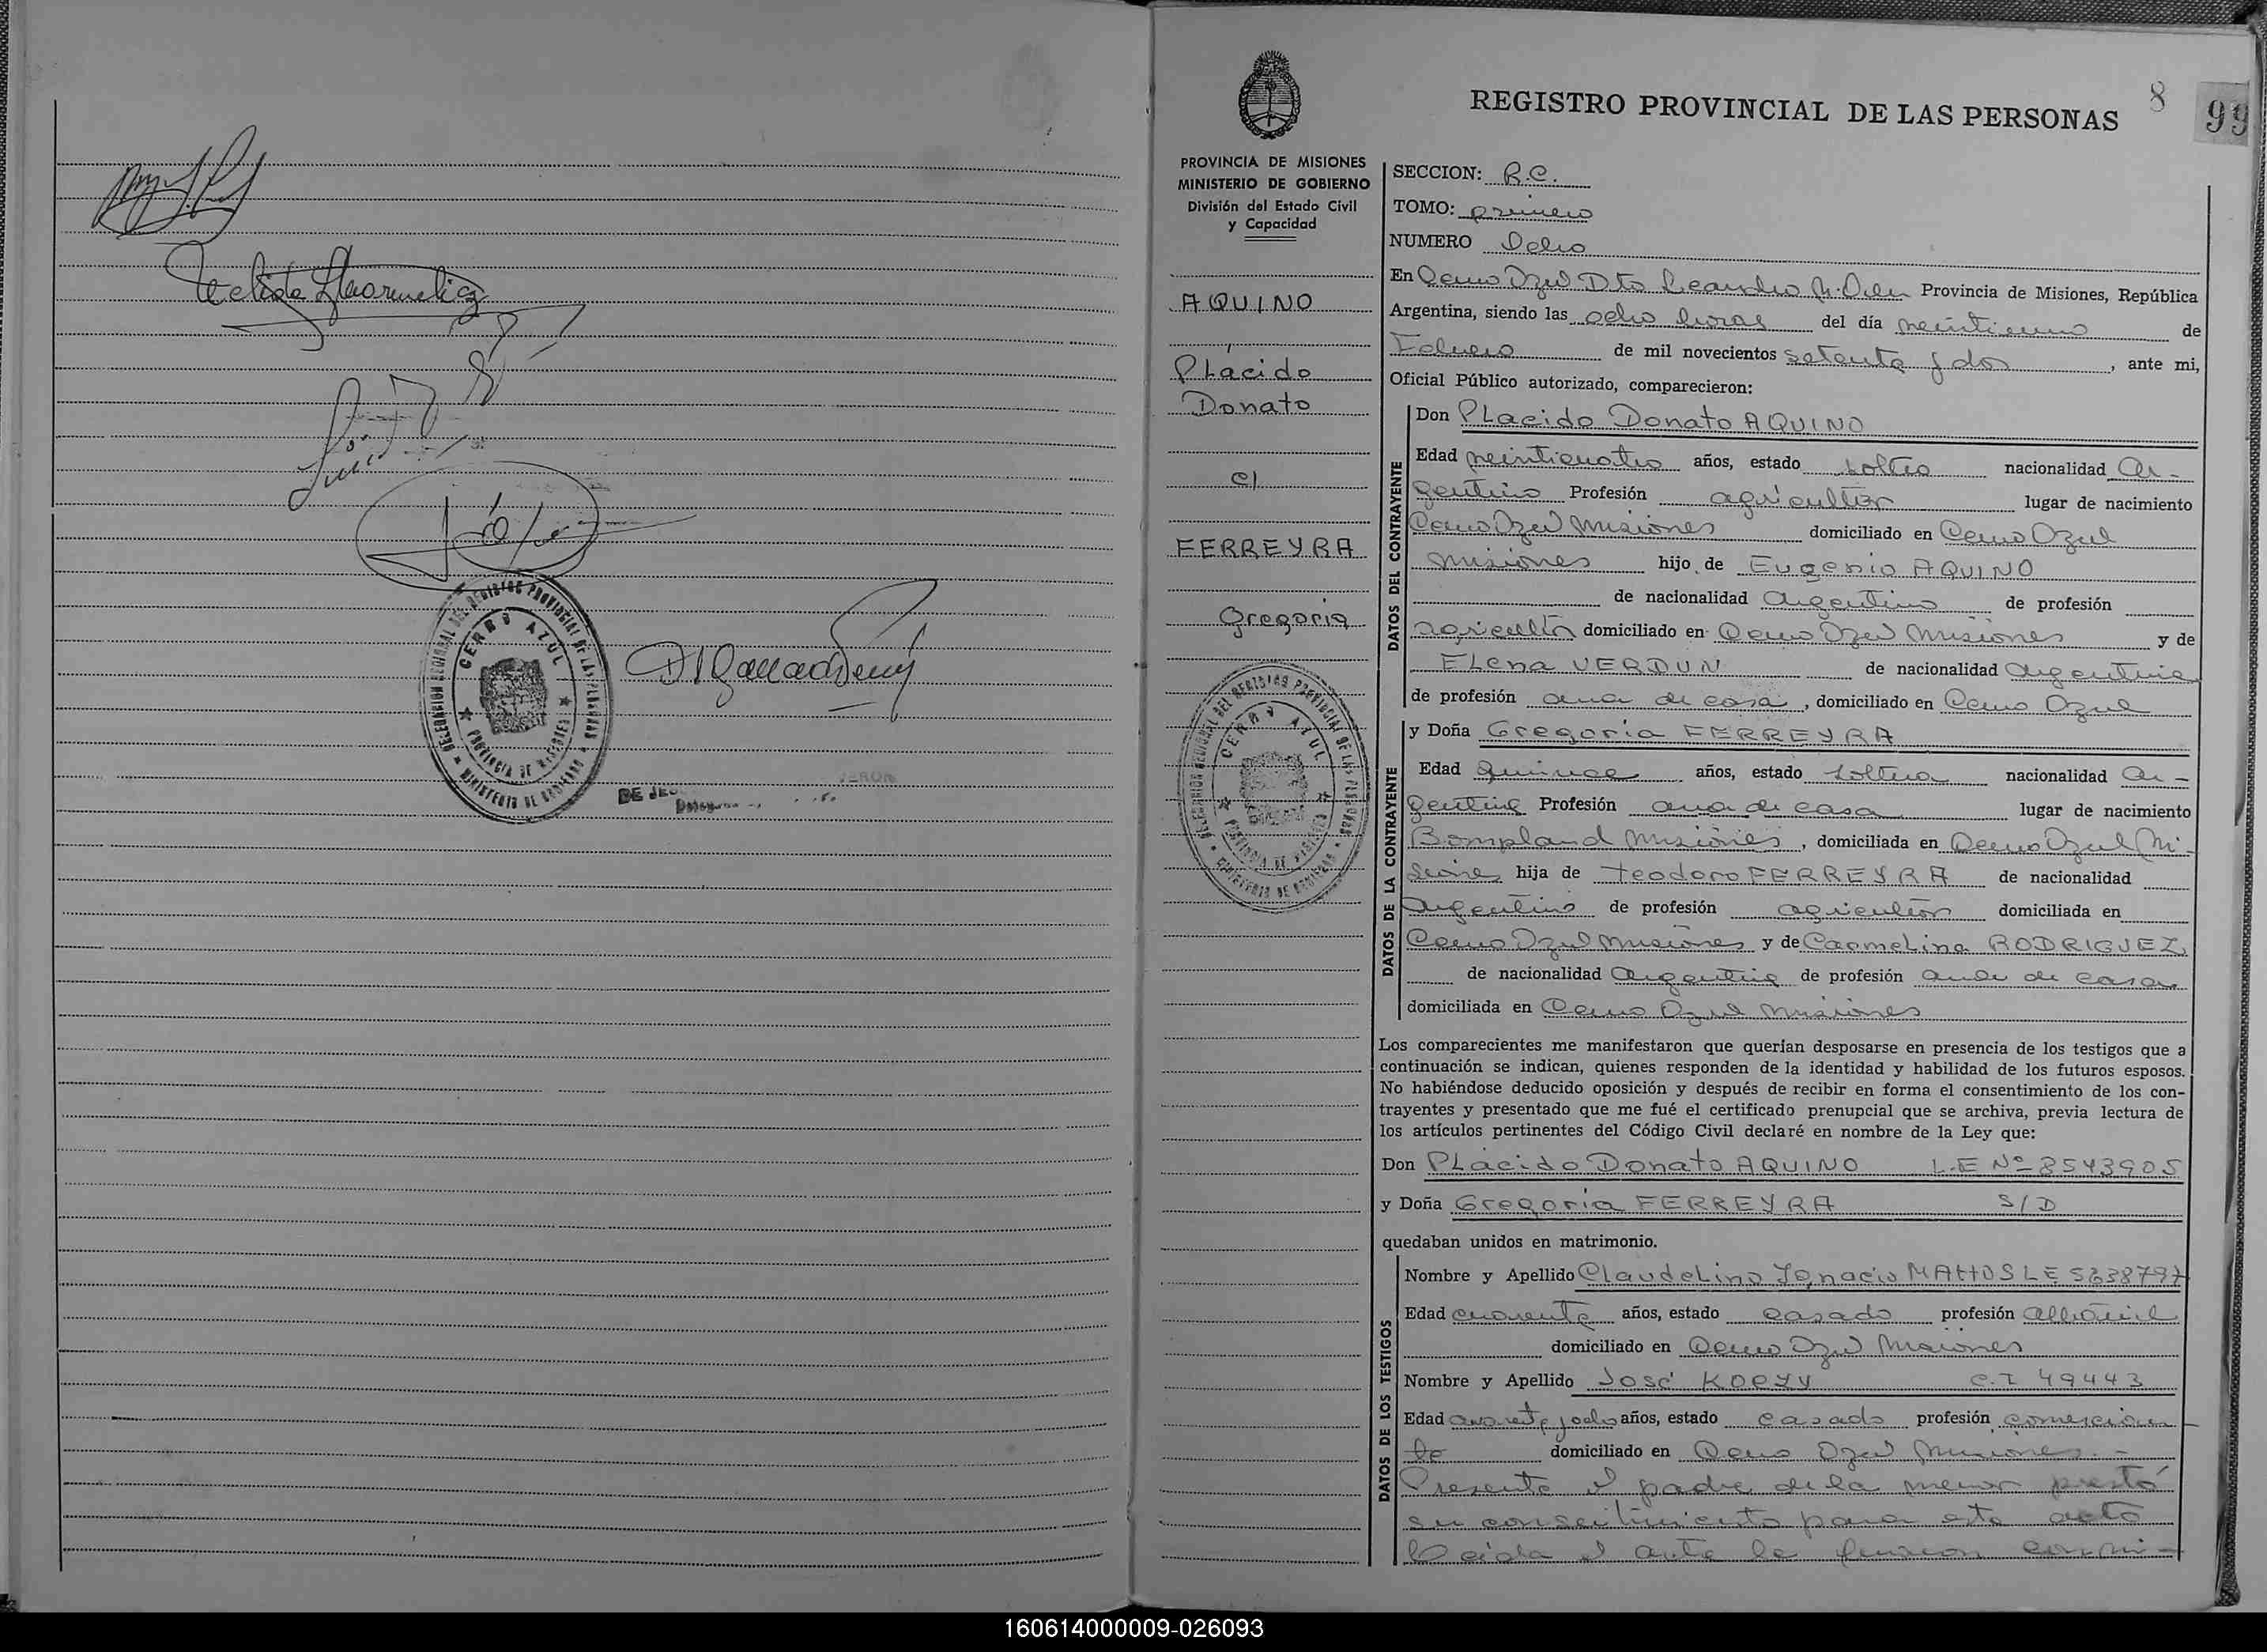 Teclida
CERRO AZUL
PROVINCIA DE MISIONES
MINISTERIO DE GOBIERNO
REGISTRO PROVINCIAL DE LAS PERSONAS
8
99
PROVINCIA DE MISIONES
MINISTERIO DE GOBIERNO
División del Estado Civil
y Capacidad
AQUINO
Plácido
Donato
c/
FERREYRA
Gregoria
DELEGACION REGIONAL DEL REGISTRO PROVINCIAL DE LAS PERSONAS
CERRO AZUL
PROVINCIA DE MISIONES
MINISTERIO DE GOBIERNO
SECCION: R.C.
TOMO: primero
NUMERO Ocho
En Cerro Azul Dto Leandro N. Alem Provincia de Misiones, República
Argentina, siendo las ocho horas del día veintiuno de
Febrero de mil novecientos setenta y dos, ante mi,
Oficial Público autorizado, comparecieron:
DATOS DEL CONTRAYENTE
Don Placido Donato AQUINO
Edad veinticuatro años, estado soltero nacionalidad Ar-
gentino Profesión agricultor lugar de nacimiento
Cerro Azul Misiones domiciliado en Cerro Azul
Misiones hijo de Eugenio AQUINO
de nacionalidad Argentino de profesión
agricultor domiciliado en Cerro Azul Misiones y de
Elena VERDUN de nacionalidad Argentina
de profesión ama de casa, domiciliado en Cerro Azul
DATOS DE LA CONTRAYENTE
y Doña Gregoria FERREYRA
Edad Quince años, estado soltera nacionalidad Ar-
gentina Profesión ama de casa lugar de nacimiento
Bompland Misiones, domiciliada en Cerro Azul Mi-
siones hija de Teodoro FERREYRA de nacionalidad
Argentino de profesión agricultor domiciliada en
Cerro Azul Misiones y de Carmelina RODRIGUEZ
de nacionalidad Argentina de profesión ama de casa
domiciliada en Cerro Azul Misiones
Los comparecientes me manifestaron que querían desposarse en presencia de los testigos que a
continuación se indican, quienes responden de la identidad y habilidad de los futuros esposos.
No habiéndose deducido oposición y después de recibir en forma el consentimiento de los con-
trayentes y presentado que me fué el certificado prenupcial que se archiva, previa lectura de
los artículos pertinentes del Código Civil declaré en nombre de la Ley que:
Don Placido Donato AQUINO L.E Nº 8543905
y Doña Gregoria FERREYRA S/D
quedaban unidos en matrimonio.
DATOS DE LOS TESTIGOS
Nombre y Apellido Claudelino Ignacio MATTOS LE 5638797
Edad cuarenta años, estado casado profesión albañil
domiciliado en Cerro Azul Misiones
Nombre y Apellido José KOEZY C.I 49443
Edad cuarenta y ocho años, estado casado profesión comercian-
te domiciliado en Cerro Azul Misiones.-
Presente el padre de la menor prestó
su consentimiento para este acto
Leida el acta la firman conmi-
160614000009-026093